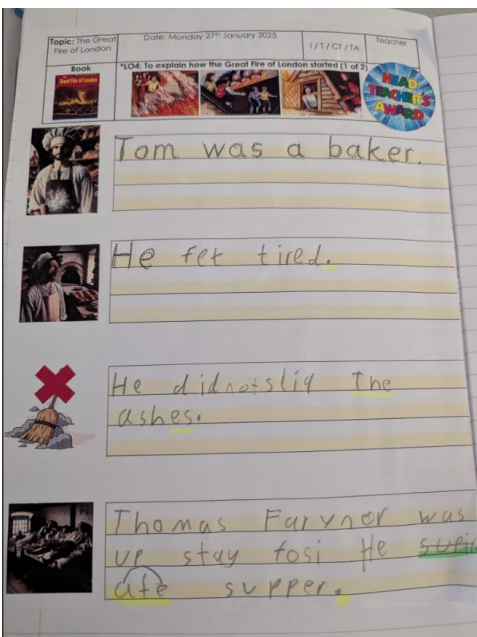 Topic: The Great
Fire of London
Date: Monday 27th January 2025
I / T / CT / TA
Teacher
Book
*LO4: To explain how the Great Fire of London started (1 of 2)
Great Fire of London
HEAD
TEACHER'S
AWARD
Tom was a baker.
He fet tired.
He didnotsliq The
ashes.
Thomas Farynor was
up stay fosi He
ate supper.